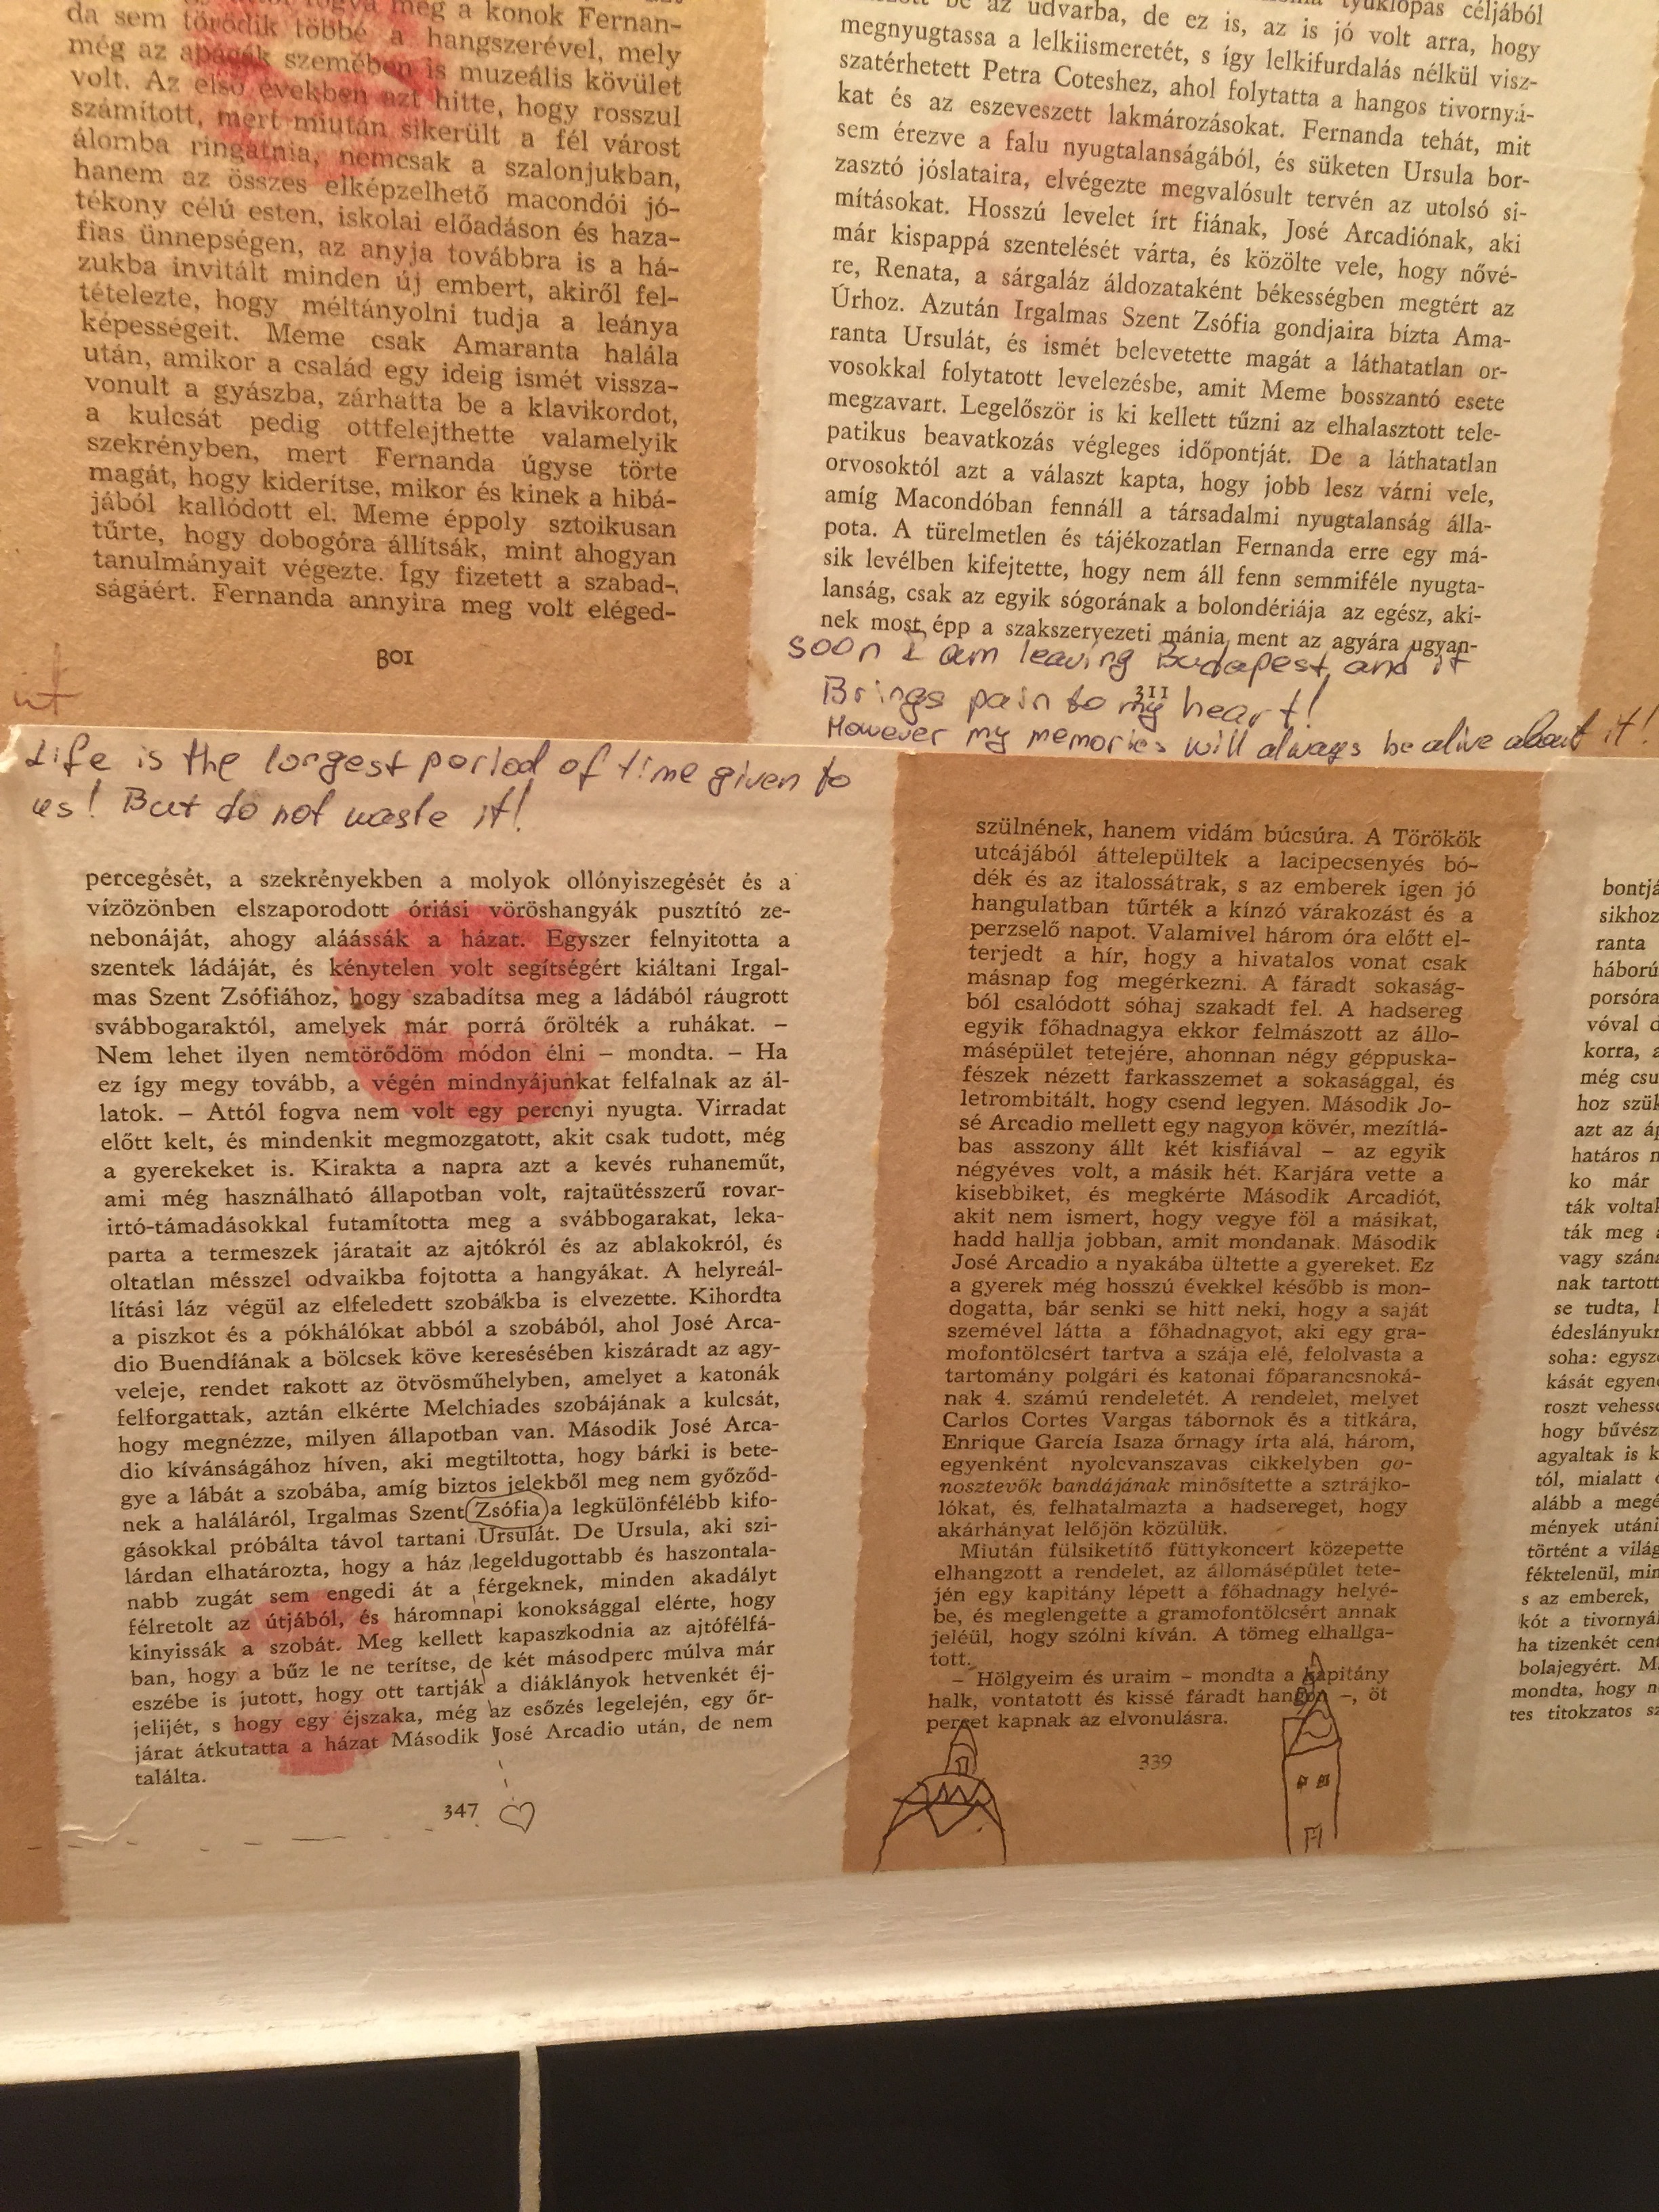 da sem törődik többé a hangszerével, mely
még az apácák szemében is muzeális kövület
volt. Az első években azt hitte, hogy rosszul
számított, mert miután sikerült a fél várost
álomba ringatnia, nemcsak a szalonjukban,
hanem az összes elképzelhető macondói jó-
tékony célú esten, iskolai előadáson és haza-
fias ünnepségen, az anyja továbbra is a há-
zukba invitált minden új embert, akiről fel-
tételezte, hogy méltányolni tudja a leánya
képességeit. Meme csak Amaranta halála
után, amikor a család egy ideig ismét vissza-
vonult a gyászba, zárhatta be a klavikordot,
a kulcsát pedig ottfelejthette valamelyik
szekrényben, mert Fernanda úgyse törte
magát, hogy kiderítse, mikor és kinek a hibá-
jából kallódott el. Meme éppoly sztoikusan
tűrte, hogy dobogóra állítsák, mint ahogyan
tanulmányait végezte. Így fizetett a szabad-
ságáért. Fernanda annyira meg volt eléged-
be az udvarba, de ez is, az is jó volt arra, hogy
megnyugtassa a lelkiismeretét, s így lelkifurdalás nélkül visz-
szatérhetett Petra Coteshez, ahol folytatta a hangos tivornyá-
kat és az eszeveszett lakmározásokat. Fernanda tehát, mit
sem érezve a falu nyugtalanságából, és süketen Ursula bor-
zasztó jóslataira, elvégezte megvalósult tervén az utolsó si-
mításokat. Hosszú levelet írt fiának, José Arcadiónak, aki
már kispappá szentelését várta, és közölte vele, hogy nővé-
re, Renata, a sárgaláz áldozataként békességben megtért az
Úrhoz. Azután Irgalmas Szent Zsófia gondjaira bízta Ama-
ranta Ursulát, és ismét belevetette magát a láthatatlan or-
vosokkal folytatott levelezésbe, amit Meme bosszantó esete
megzavart. Legelőször is ki kellett tűzni az elhalasztott tele-
patikus beavatkozás végleges időpontját. De a láthatatlan
orvosoktól azt a választ kapta, hogy jobb lesz várni vele,
amíg Macondóban fennáll a társadalmi nyugtalanság álla-
pota. A türelmetlen és tájékozatlan Fernanda erre egy má-
sik levélben kifejtette, hogy nem áll fenn semmiféle nyugta-
lanság, csak az egyik sógorának a bolondériája az egész, aki-
nek most épp a szakszervezeti mánia ment az agyára ugyan-
soon I am leaving Budapest and it
Brings pain to my heart!
311
However my memories will always be alive about it!
Life is the longest period of time given to
us! But do not waste it!
percegését, a szekrényekben a molyok ollónyiszegését és a
vízözönben elszaporodott óriási vöröshangyák pusztító ze-
nebonáját, ahogy aláássák a házat. Egyszer felnyitotta a
szentek ládáját, és kénytelen volt segítségért kiáltani Irgal-
mas Szent Zsófiához, hogy szabadítsa meg a ládából ráugrott
svábbogaraktól, amelyek már porrá őrölték a ruhákat. –
Nem lehet ilyen nemtörődöm módon élni – mondta. – Ha
ez így megy tovább, a végén mindnyájunkat felfalnak az ál-
latok. – Attól fogva nem volt egy percnyi nyugta. Virradat
előtt kelt, és mindenkit megmozgatott, akit csak tudott, még
a gyerekeket is. Kirakta a napra azt a kevés ruhaneműt,
ami még használható állapotban volt, rajtaütésszerű rovar-
irtó-támadásokkal futamította meg a svábbogarakat, leka-
parta a termeszek járatait az ajtókról és az ablakokról, és
oltatlan mésszel odvaikba fojtotta a hangyákat. A helyreál-
lítási láz végül az elfeledett szobákba is elvezette. Kihordta
a piszkot és a pókhálókat abból a szobából, ahol José Arca-
dio Buendíának a bölcsek köve keresésében kiszáradt az agy-
veleje, rendet rakott az ötvösműhelyben, amelyet a katonák
felforgattak, aztán elkérte Melchiades szobájának a kulcsát,
hogy megnézze, milyen állapotban van. Második José Arca-
dio kívánságához híven, aki megtiltotta, hogy bárki is bete-
gye a lábát a szobába, amíg biztos jelekből meg nem győződ-
nek a haláláról, Irgalmas Szent Zsófia a legkülönfélébb kifo-
gásokkal próbálta távol tartani Ursulát. De Ursula, aki szi-
lárdan elhatározta, hogy a ház legeldugottabb és haszontala-
nabb zugát sem engedi át a férgeknek, minden akadályt
félretolt az útjából, és háromnapi konoksággal elérte, hogy
kinyissák a szobát. Meg kellett kapaszkodnia az ajtófélfá-
ban, hogy a bűz le ne terítse, de két másodperc múlva már
eszébe is jutott, hogy ott tartják a diáklányok hetvenkét éj-
jelijét, s hogy egy éjszaka, még az esőzés legelején, egy őr-
járat átkutatta a házat Második José Arcadio után, de nem
találta.
347
szülnének, hanem vidám búcsúra. A Törökök
utcájából áttelepültek a lacipecsenyés bó-
dék és az italossátrak, s az emberek igen jó
hangulatban tűrték a kínzó várakozást és a
perzselő napot. Valamivel három óra előtt el-
terjedt a hír, hogy a hivatalos vonat csak
másnap fog megérkezni. A fáradt sokaság-
ból csalódott sóhaj szakadt fel. A hadsereg
egyik főhadnagya ekkor felmászott az állo-
másépület tetejére, ahonnan négy géppuska-
fészek nézett farkasszemet a sokasággal, és
letrombitált, hogy csend legyen. Második Jo-
sé Arcadio mellett egy nagyon kövér, mezítlá-
bas asszony állt két kisfiával – az egyik
négyéves volt, a másik hét. Karjára vette a
kisebbiket, és megkérte Második Arcadiót,
akit nem ismert, hogy vegye föl a másikat,
hadd hallja jobban, amit mondanak. Második
José Arcadio a nyakába ültette a gyereket. Ez
a gyerek még hosszú évekkel később is mon-
dogatta, bár senki se hitt neki, hogy a saját
szemével látta a főhadnagyot, aki egy gra-
mofontölcsért tartva a szája elé, felolvasta a
tartomány polgári és katonai főparancsnoká-
nak 4. számú rendeletét. A rendelet, melyet
Carlos Cortes Vargas tábornok és a titkára,
Enrique García Isaza őrnagy írta alá, három,
egyenként nyolcvanszavas cikkelyben go-
nosztevők bandájának minősítette a sztrájko-
lókat, és felhatalmazta a hadsereget, hogy
akárhányat lelőjön közülük.
Miután fülsiketítő füttykoncert közepette
elhangzott a rendelet, az állomásépület tete-
jén egy kapitány lépett a főhadnagy helyé-
be, és meglengette a gramofontölcsért annak
jeléül, hogy szólni kíván. A tömeg elhallga-
tott.
– Hölgyeim és uraim – mondta a kapitány
halk, vontatott és kissé fáradt hangon –, öt
percet kapnak az elvonulásra.
339
sikhoz
ranta
korra,
hoz szük
határos
ko már
ták meg
nak tartott
se tudta,
soha:
kását
hogy
tól, mialatt
alább a
történt a
s az emberek,
kót a
mondta, hogy
tes titokzatos